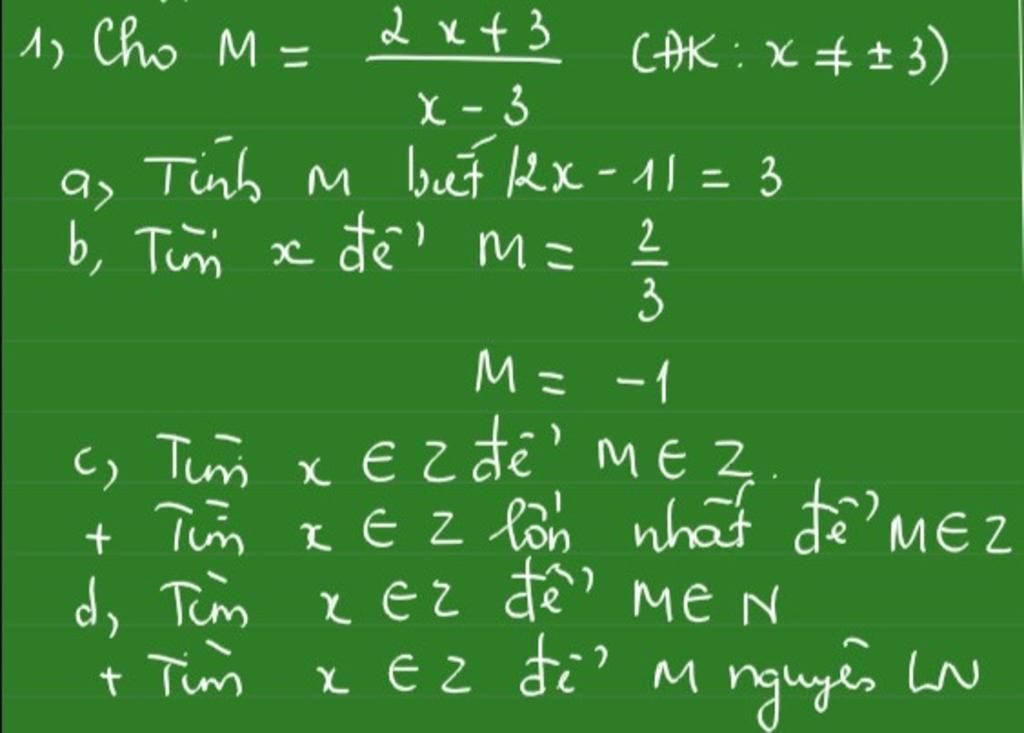 1, Cho M = \frac{2x+3}{x-3} (ĐK: x ≠ ±3)
a, Tính M biết |2x-1| = 3
b, Tìm x để M = \frac{2}{3}
M = -1
c, Tìm x ∈ Z để M ∈ Z.
+ Tìm x ∈ Z lớn nhất để M ∈ Z
d, Tìm x ∈ Z để M ∈ N
+ Tìm x ∈ Z để M nguyên LN